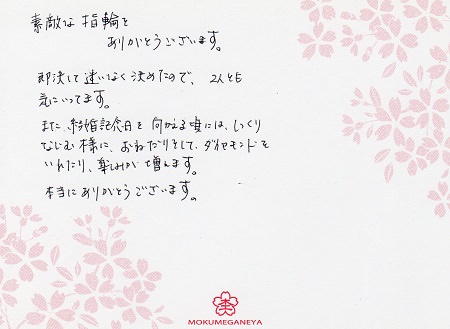 素敵な指輪を
ありがとうございます。
即決して迷いなく決めたので、2人とも
気にいってます。
また、結婚記念日を向かえる頃には、しっくり
なじむ様に、おねだりをして、ダイヤモンドを
いれたり、楽しみが増えます。
本当にありがとうございます。
MOKUMEGANEYA